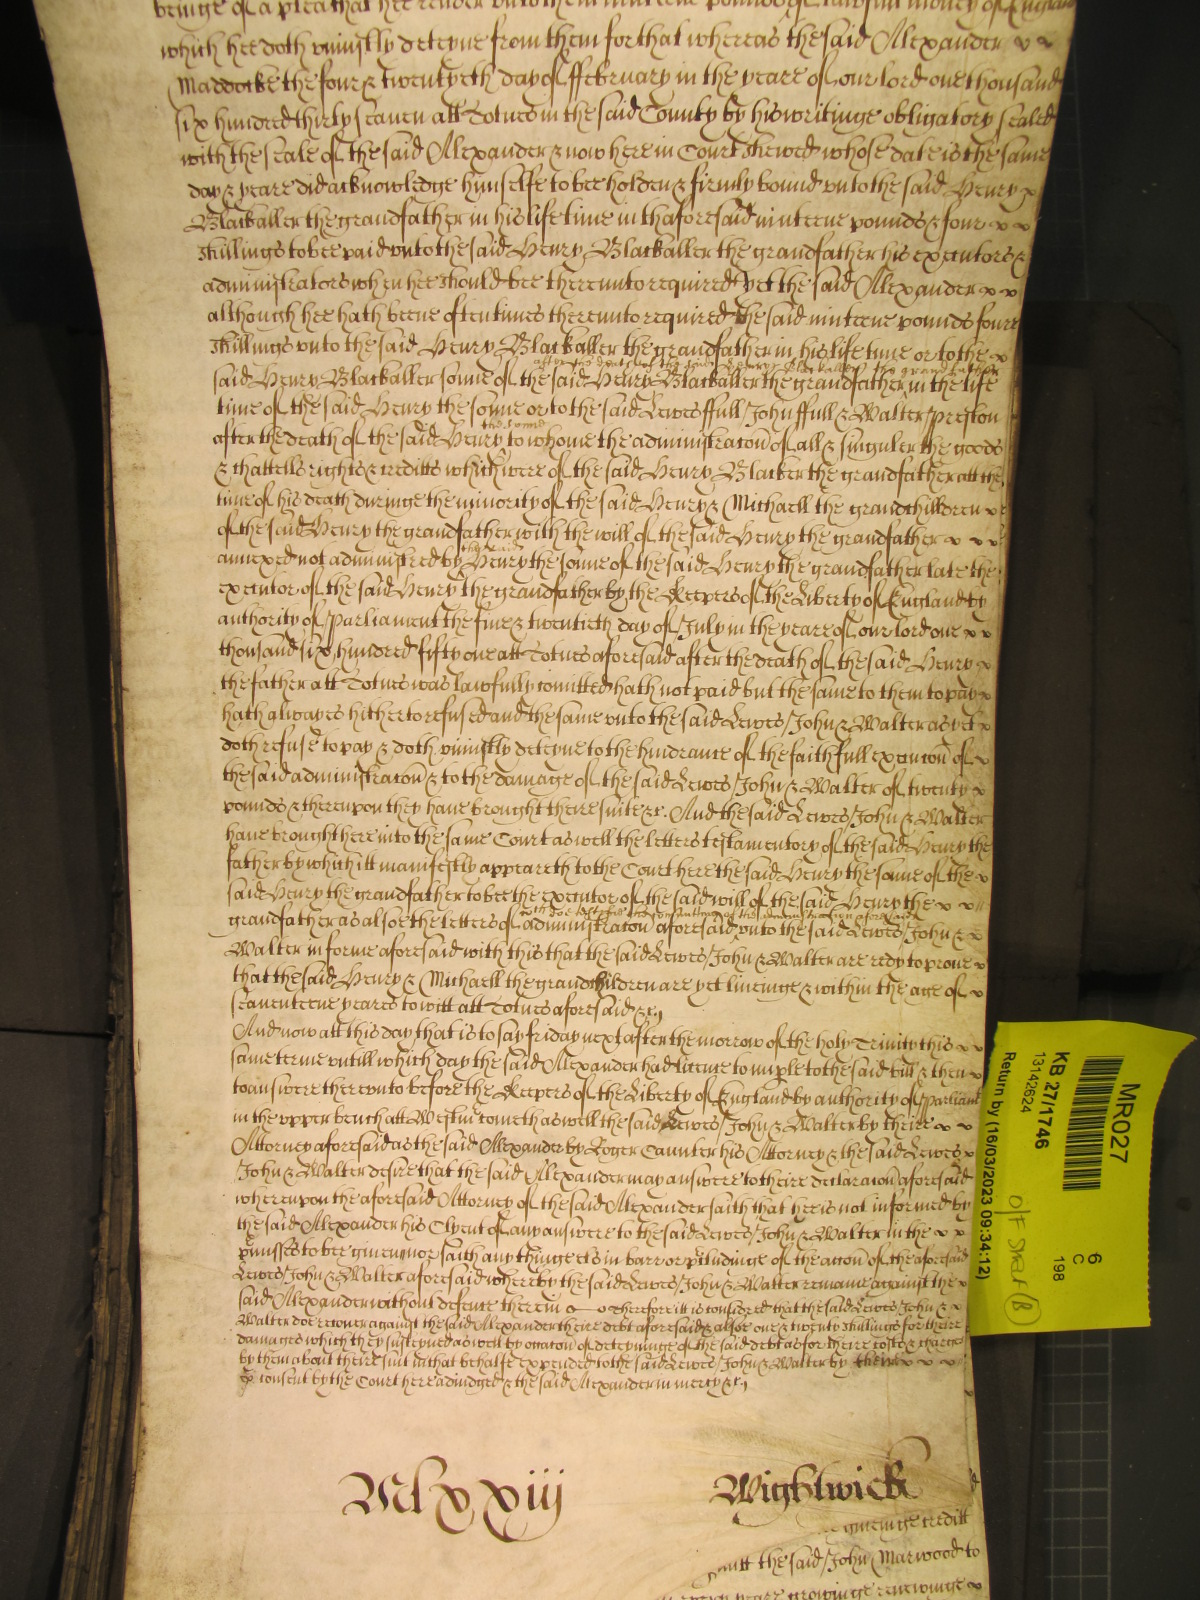 beinge of a plea that hee render unto them nineteene pounds of lawfull money of England
which hee doth uniustly deteyne from them for that whereas the said Alexander
Maddocke the four & twentyeth day of ffebruary in the yeare of our lord one thousand
six hundred thirty seaven att Totnes in the said County by his writinge obligatory sealed
with the seale of the said Alexander & now here in Court shewed whose date is the same
day & yeare did acknowledge himselfe to bee holden & firmly bound unto the said Henry
Blackaller the grandfather in his life time in thaforesaid ninteene pounds & four
shillings to bee paid unto the said Henry Blackaller the grandfather his executors &
administrators when hee should bee thereunto required yet the said Alexander
although hee hath beene oftentimes thereunto required the said ninteene pounds foure
shillings unto the said Henry Blackaller the grandfather in his life time or to the
after the death of the said Henry Blackaller the grandfather
said Henry Blackaller sonne of the said Henry Blackaller the grandfather in the life
time of the said Henry the sonne or to the said Lewes ffull John ffull & Walter Preston
the sonne
after the death of the said Henry to whome the administracon of all & singuler the goods
& chattells rights & creditts which were of the said Henry Blacker the grandfather att the
time of his death duringe the minority of the said Henry & Michaell the grandchildren
of the said Henry the grandfather with the will of the said Henry the grandfather
the said
annexed not administred by Henry the sonne of the said Henry the grandfather late the
executor of the said Henry the grandfather by the Keepers of the Liberty of England by
authority of Parliament the five & twentieth day of July in the yeare of our lord one
thousand six hundred fifty one att Totnes aforesaid after the death of the said Henry
the father att Totnes was lawfully comitted hath not paid but the same to them to pay
hath alwayes hitherto refused and the same unto the said Lewes John & Walter as yet
doth refuse to pay & doth uniustly deteyne to the hindrance of the faithfull execucon of
the said administracon & to the damage of the said Lewes John & Walter of twenty
pounds & thereupon they have brought theire suite &c. And the said Lewes John & Walter
have brought here into the same Court as well the letters testamentory of the said Henry the
father by which itt manifestly appeareth to the Court here the said Henry the sonne of the
said Henry the grandfather to bee the executor of the said will of the said Henry the
wch doe testifie the comittinge of the administracion aforesaid
grandfather as alsoe the letters of administracon aforesaid unto the said Lewes John &
Walter in forme aforesaid with this that the said Lewes John & Walter are redy to prove
that the said Henry & Michaell the grandchildren are yet liveinge & within the age of
seaventeene yeares to witt att Totnes aforesaid &c.
And now att this day that is to say friday next after the morrow of the holy Trinity this
same terme untill which day the said Alexander had licence to imple to the said bill & then
to answere thereunto before the Keepers of the Liberty of England by authority of Parliamt
in the upper bench att Westm cometh as well the said Lewes John & Walter by theire
Attorney aforesaid as the said Alexander by Roger Caunter his Attorney & the said Lewes
John & Walter desire that the said Alexander may answere to theire declaracon aforesaid
whereupon the aforesaid Attorney of the said Alexander saith that hee is not informed by
the said Alexander his Clyent of any answere to the said Lewes John & Walter in the
pmisses to bee given nor saith any thinge els in barr or pcludinge of the accon of the aforesaid
Lewes John & Walter aforesaid whereby the said Lewes John & Walter remaine against the
said Alexander without defence therein Therefore itt is considred that the said Lewes John &
Walter doe recover against the said Alexander theire debt aforesaid & alsoe one & twenty shillings for theire
damages which they susteyned as well by occacon of deteyninge of the said debt as for theire costs & charges
by them about theire suit in that behalfe expended to the said Lewes John & Walter by theire
consent by the Court here adiudged & the said Alexander in mercy &c.
Mlxxiij Wightwick
giveinge creditt
the said John Marwood to
yeare growinge renewinge
MR027
KB 27/1746
13142624
Return by (16/03/2023 09:34:12)
6
C
198